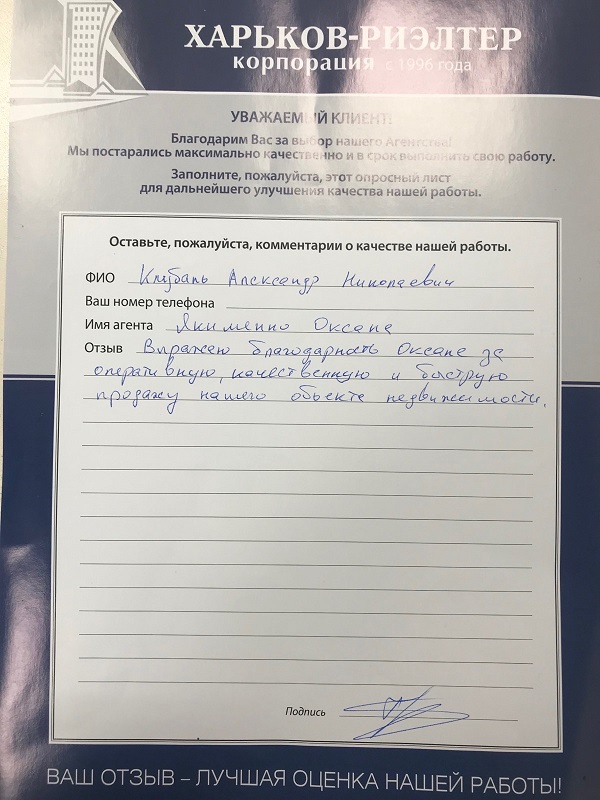 ХАРЬКОВ-РИЭЛТЕР
корпорация с 1996 года
УВАЖАЕМЫЙ КЛИЕНТ!
Благодарим Вас за выбор нашего Агентства!
Мы постарались максимально качественно и в срок выполнить свою работу.
Заполните, пожалуйста, этот опросный лист
для дальнейшего улучшения качества нашей работы.
Оставьте, пожалуйста, комментарии о качестве нашей работы.
ФИО Александр Николаевич
Ваш номер телефона
Имя агента Якименко Оксана
Отзыв Выражаю благодарность Оксане за
оперативную, качественную и быструю
продажу нашего объекта недвижимости.
Подпись
ВАШ ОТЗЫВ – ЛУЧШАЯ ОЦЕНКА НАШЕЙ РАБОТЫ!